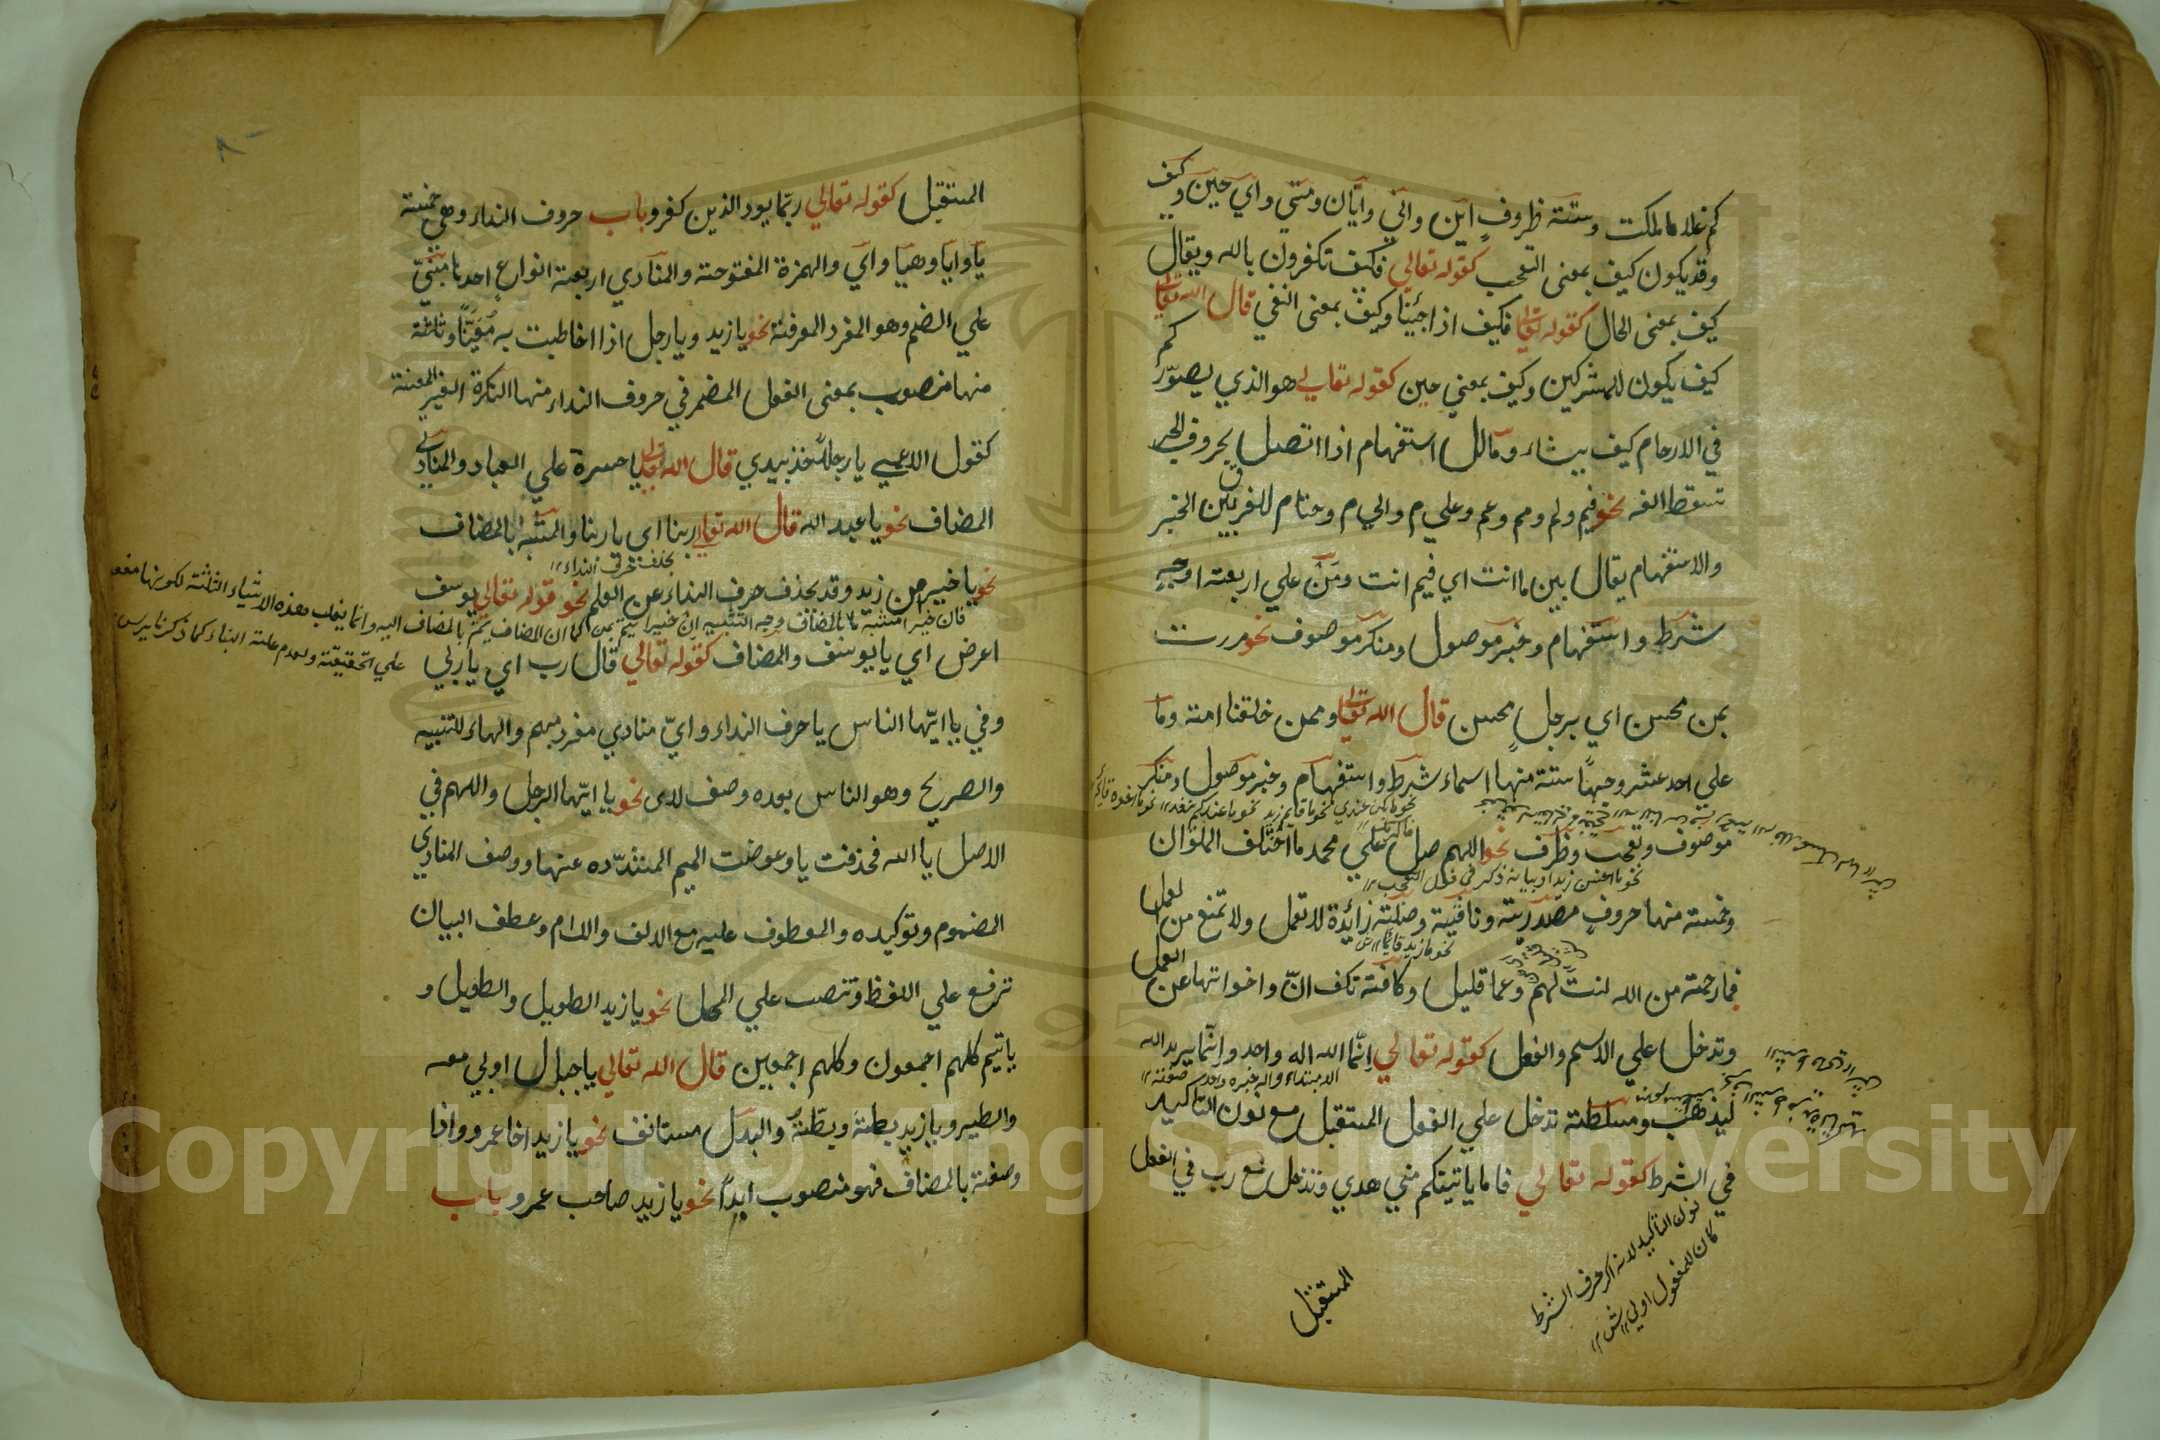 كم غلاما ملكت وستة ظروف اين واني وايان ومتي واي حين وكيف
وقد يكون كيف بمعنى التعجب كقوله تعالي فكيف تكفرون بالله ويقال
كيف بمعنى الحال كقوله تعالى فكيف اذا جئنا وكيف بمعنى النفي قال الله تعالى
كيف يكون للمشركين وكيف بمعني حين كقوله تعالي هو الذي يصوركم
في الارحام كيف يشاء وما لل استفهام اذا اتصل بحروف الجر
تسقط الفه نحو فيم ولم ومم وعم وعلي م والي م وحتام للفرق بين الخبر
والاستفهام يقال بين ما انت اي فيم انت ومن علي اربعة اوجه
شرط واستفهام وخبر موصول ومنكر موصوف نحو مررت
بمن محسن اي برجل محسن قال الله تعالى وممن خلقنا امة وما
علي احد عشر وجها ستة منها اسماء شرط واستفهام وخبر موصول ومنكر
موصوف وتعجب وظرف نحو اللهم صل علي محمد ما اختلف الملوان
وخمسة منها حروف مصدرية ونافية وصلة زائدة لا تعمل ولا تمنع من العمل
فبما رحمة من الله لنت لهم وعما قليل وكافة تكف ان واخواتها عن العمل
وتدخل علي الاسم والفعل كقوله تعالي انما الله اله واحد وانما يريد الله
ليذهب ومسلطة تدخل علي الفعل المستقبل مع نون التأكيد
في الشرط كقوله تعالي فاما ياتينكم مني هدي وتدخل مع رب في الفعل
نون التأكيد لانه اكر حرف الشرط
كان للمفعول اولي ش
المستقبل
المستقبل كقوله تعالي ربما يود الذين كفرو باب حروف النداء وهي خمسة
يا وايا وهيا واي والهمزة المفتوحة والمنادي اربعة انواع احدها مبني
علي الضم وهو المفرد المعرفة نحو يا زيد ويا رجل اذا خاطبت به معينا وثلثة
منها منصوب بمعنى الفعل المضمر في حروف النداء منها النكرة الغير المعينة
كقول الاعمي يا رجلا خذ بيدي قال الله تعالى يا حسرة علي العباد والمنادي
المضاف نحو يا عبد الله قال الله تعالي ربنا اي يا ربنا والمشبه بالمضاف
بحذف حرف النداء
نحو يا خير من زيد وقد يحذف حرف النداء عن العلم نحو قوله تعالي يوسف
فان خيرا مشبة بالمضاف وجه التشبيه ان خير ايتم بمن كما ان المضاف يتم بالمضاف اليه وانما ينصب هذه الاشياء الثلثة لكونها مفعو
علي الحقيقة ولعدم علة البناء كما ذكرنا
اعرض اي يا يوسف والمضاف كقوله تعالي قال رب اي يا ربي
وفي يا ايها الناس يا حرف النداء واي منادي مفرد مبهم والهاء للتنبيه
والصريح وهو الناس بعده وصف لاى نحو يا ايها الرجل واللهم في
الاصل يا الله فحذفت يا وعوضت الميم المشدده عنها ووصف المنادي
المضموم وتوكيده والمعطوف عليه مع الالف واللام وعطف البيان
ترفع علي اللفظ وتنصب علي المحل نحو يا زيد الطويل والطويل و
يا تيم كلهم اجمعون وكلهم اجمعين قال الله تعالي يا جبال اوبي معه
والطير ويا زيد بطة وبطة والبدل مستانف نحو يا زيد اخا عمرو واذا
وصفته بالمضاف فهو منصوب ابدا نحو يا زيد صاحب عمرو باب
Copyright © King Saud University